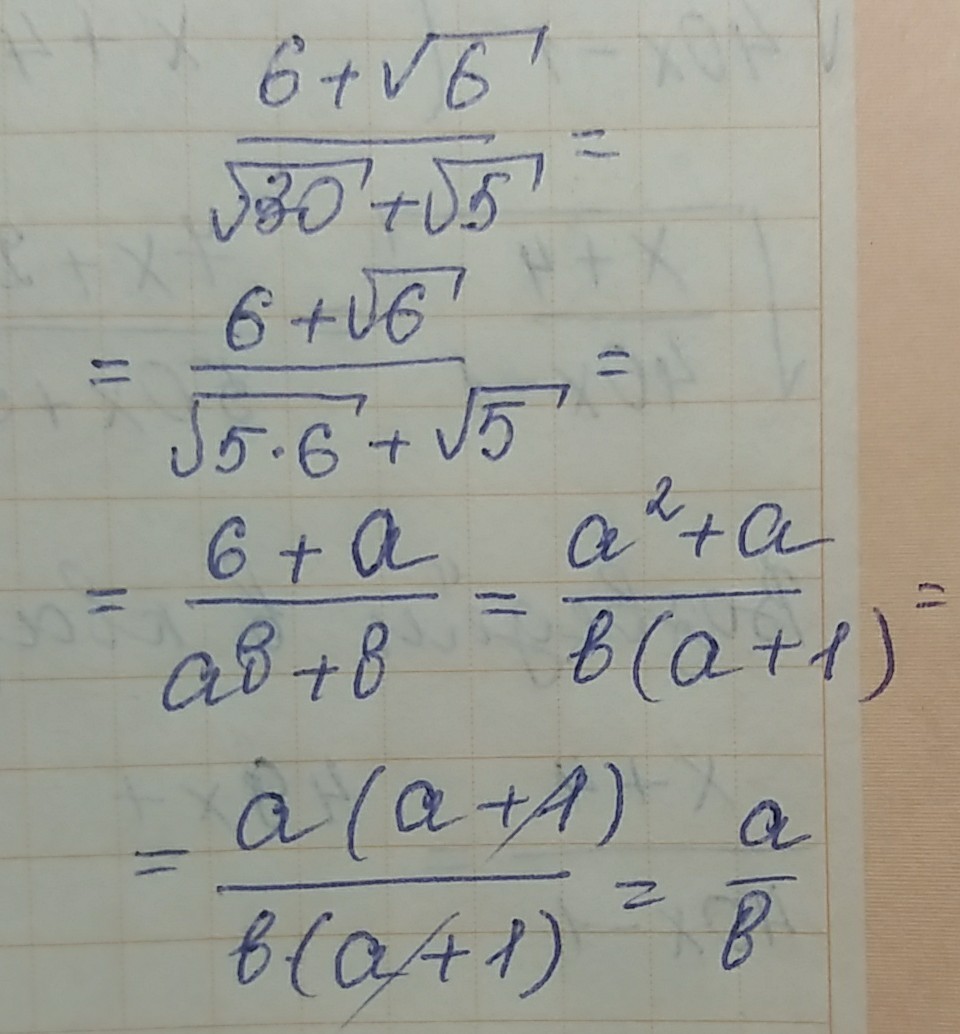 (6+√6)/(√30+√5) =
= (6+√6)/(√5·6 + √5) =
= (6+a)/(ab+b) = (a²+a)/(b(a+1)) =
= a(a+1)/b(a+1) = a/b